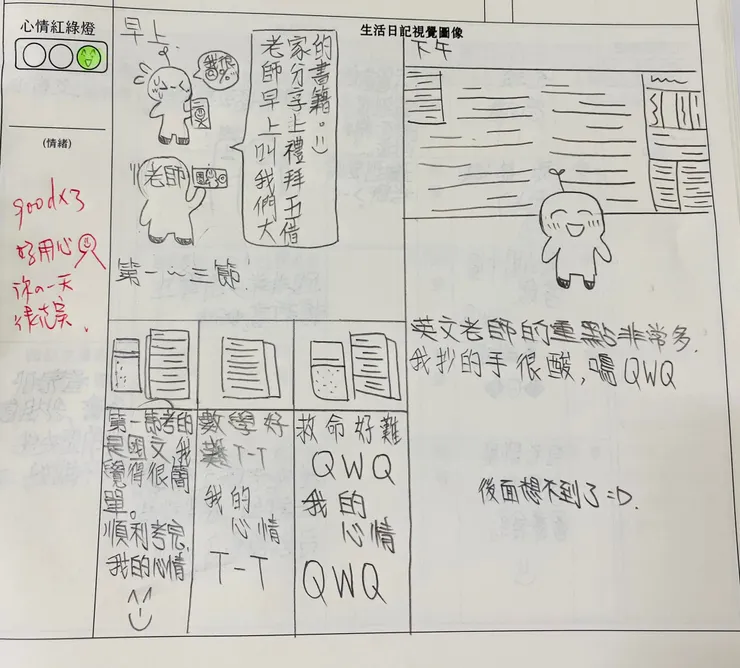 心情紅綠燈
生活日記視覺圖像
(情緒)
goodx3
好用心
你の一天
很充實.
早上
老師早上叫我們大
家分享上禮拜五借
的書籍。
老師
第一~三節
第一節考的
是國文,我
覺得很簡
單。
順利考完,
我的心情
^^
數學好
難T-T
我的
心情
T-T
救命好難
QWQ
我的
心情
QWQ
下午
英文老師的重點非常多.
我抄的手很酸,嗚QWQ
後面想不到了=D.